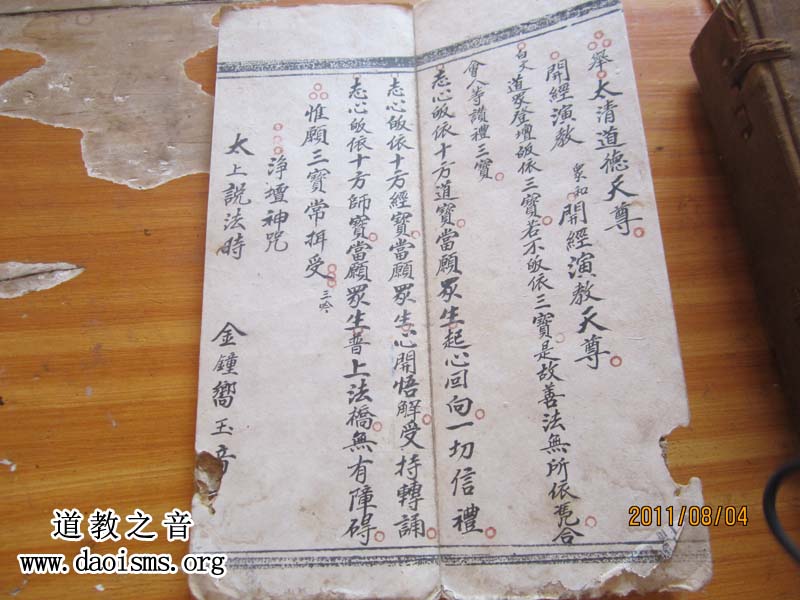 舉太清道德天尊
開經演教 衆和 開經演教天尊
白文 道眾登壇皈依三寶若不皈依三寶是故善法無所依凴合
會人等讚禮三寶
志心皈依十方道寶當願眾生起心回向一切信禮
志心皈依十方經寶當願眾生心開悟解受持轉誦
志心皈依十方師寶當願眾生普上法橋無有障碍
惟願三寶常揖受 三吟
淨壇神咒
太上説法時 金鐘嚮玉音
道教之音
www.daoisms.org
2011/08/04